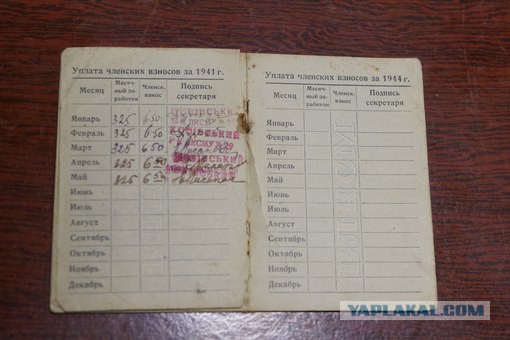 Уплата членских взносов за 1941 г.
Месяц Месяч-ный за-работок Членск. взнос Подпись секретаря
Январь 325 6 50
Февраль 325 6 50
Март 325 6 50
Апрель 325 6 50
Май 325 6 50
Июнь
Июль
Август
Сентябрь
Октябрь
Ноябрь
Декабрь
Уплата членских взносов за 1944 г.
Месяц Месяч-ный за-работок Членск. взнос Подпись секретаря
Январь
Февраль
Март
Апрель
Май
Июнь
Июль
Август
Сентябрь
Октябрь
Ноябрь
Декабрь
YAPLAKAL.COM